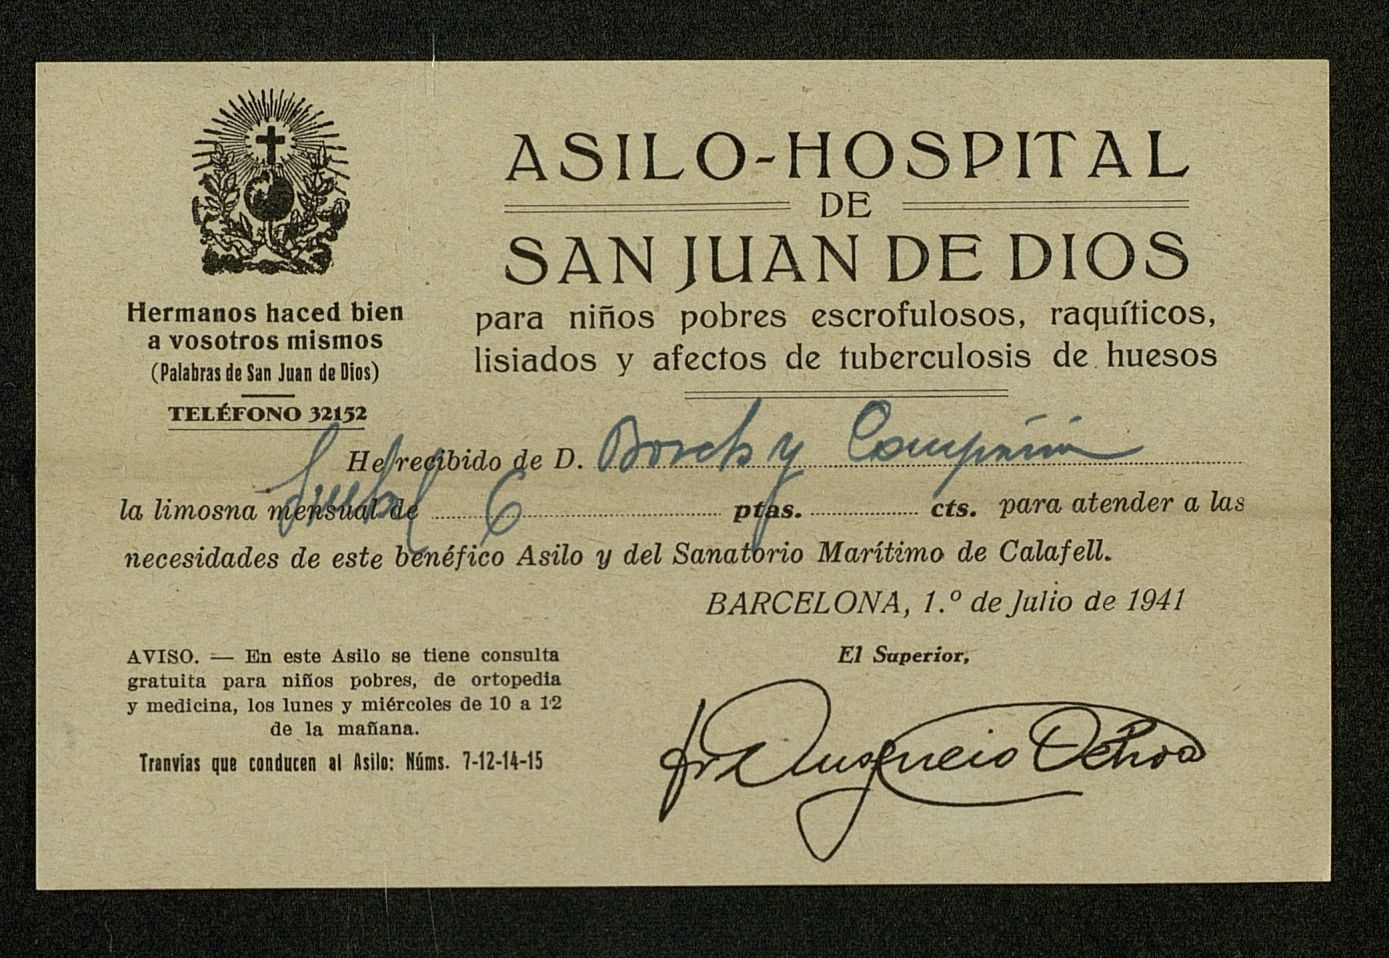 Hermanos haced bien
a vosotros mismos
(Palabras de San Juan de Dios)
TELÉFONO 32152
ASILO-HOSPITAL
DE
SAN JUAN DE DIOS
para niños pobres escrofulosos, raquíticos,
lisiados y afectos de tuberculosis de huesos
He recibido de D. Bosch y Compañía
la limosna mensual de 6 ptas. cts. para atender a las
necesidades de este benéfico Asilo y del Sanatorio Marítimo de Calafell.
BARCELONA, 1.º de Julio de 1941
El Superior,
AVISO. — En este Asilo se tiene consulta
gratuita para niños pobres, de ortopedia
y medicina, los lunes y miércoles de 10 a 12
de la mañana.
Tranvías que conducen al Asilo: Núms. 7-12-14-15
Ochoa